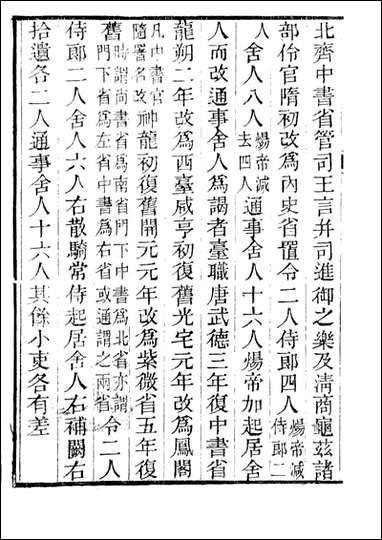 北齊中書省管司王言并司進御之樂及清商龜茲諸
部伶官隋初改爲內史省置令二人侍郎四人煬帝減侍郎二
人舍人八人煬帝減去四人通事舍人十六人煬帝加起居舍
人而改通事舍人爲謁者臺職唐武德三年復中書省
龍朔二年改爲西臺咸亨初復舊光宅元年改爲鳳閣
凡中書官隨署名改神龍初復舊開元元年改爲紫微省五年復
舊時謂尚書省爲南省門下中書爲北省亦謂門下省爲左省中書爲右省或通謂之兩省令二人
侍郎二人舍人六人右散騎常侍起居舍人右補闕右
拾遺各二人通事舍人十六人其餘小吏各有差